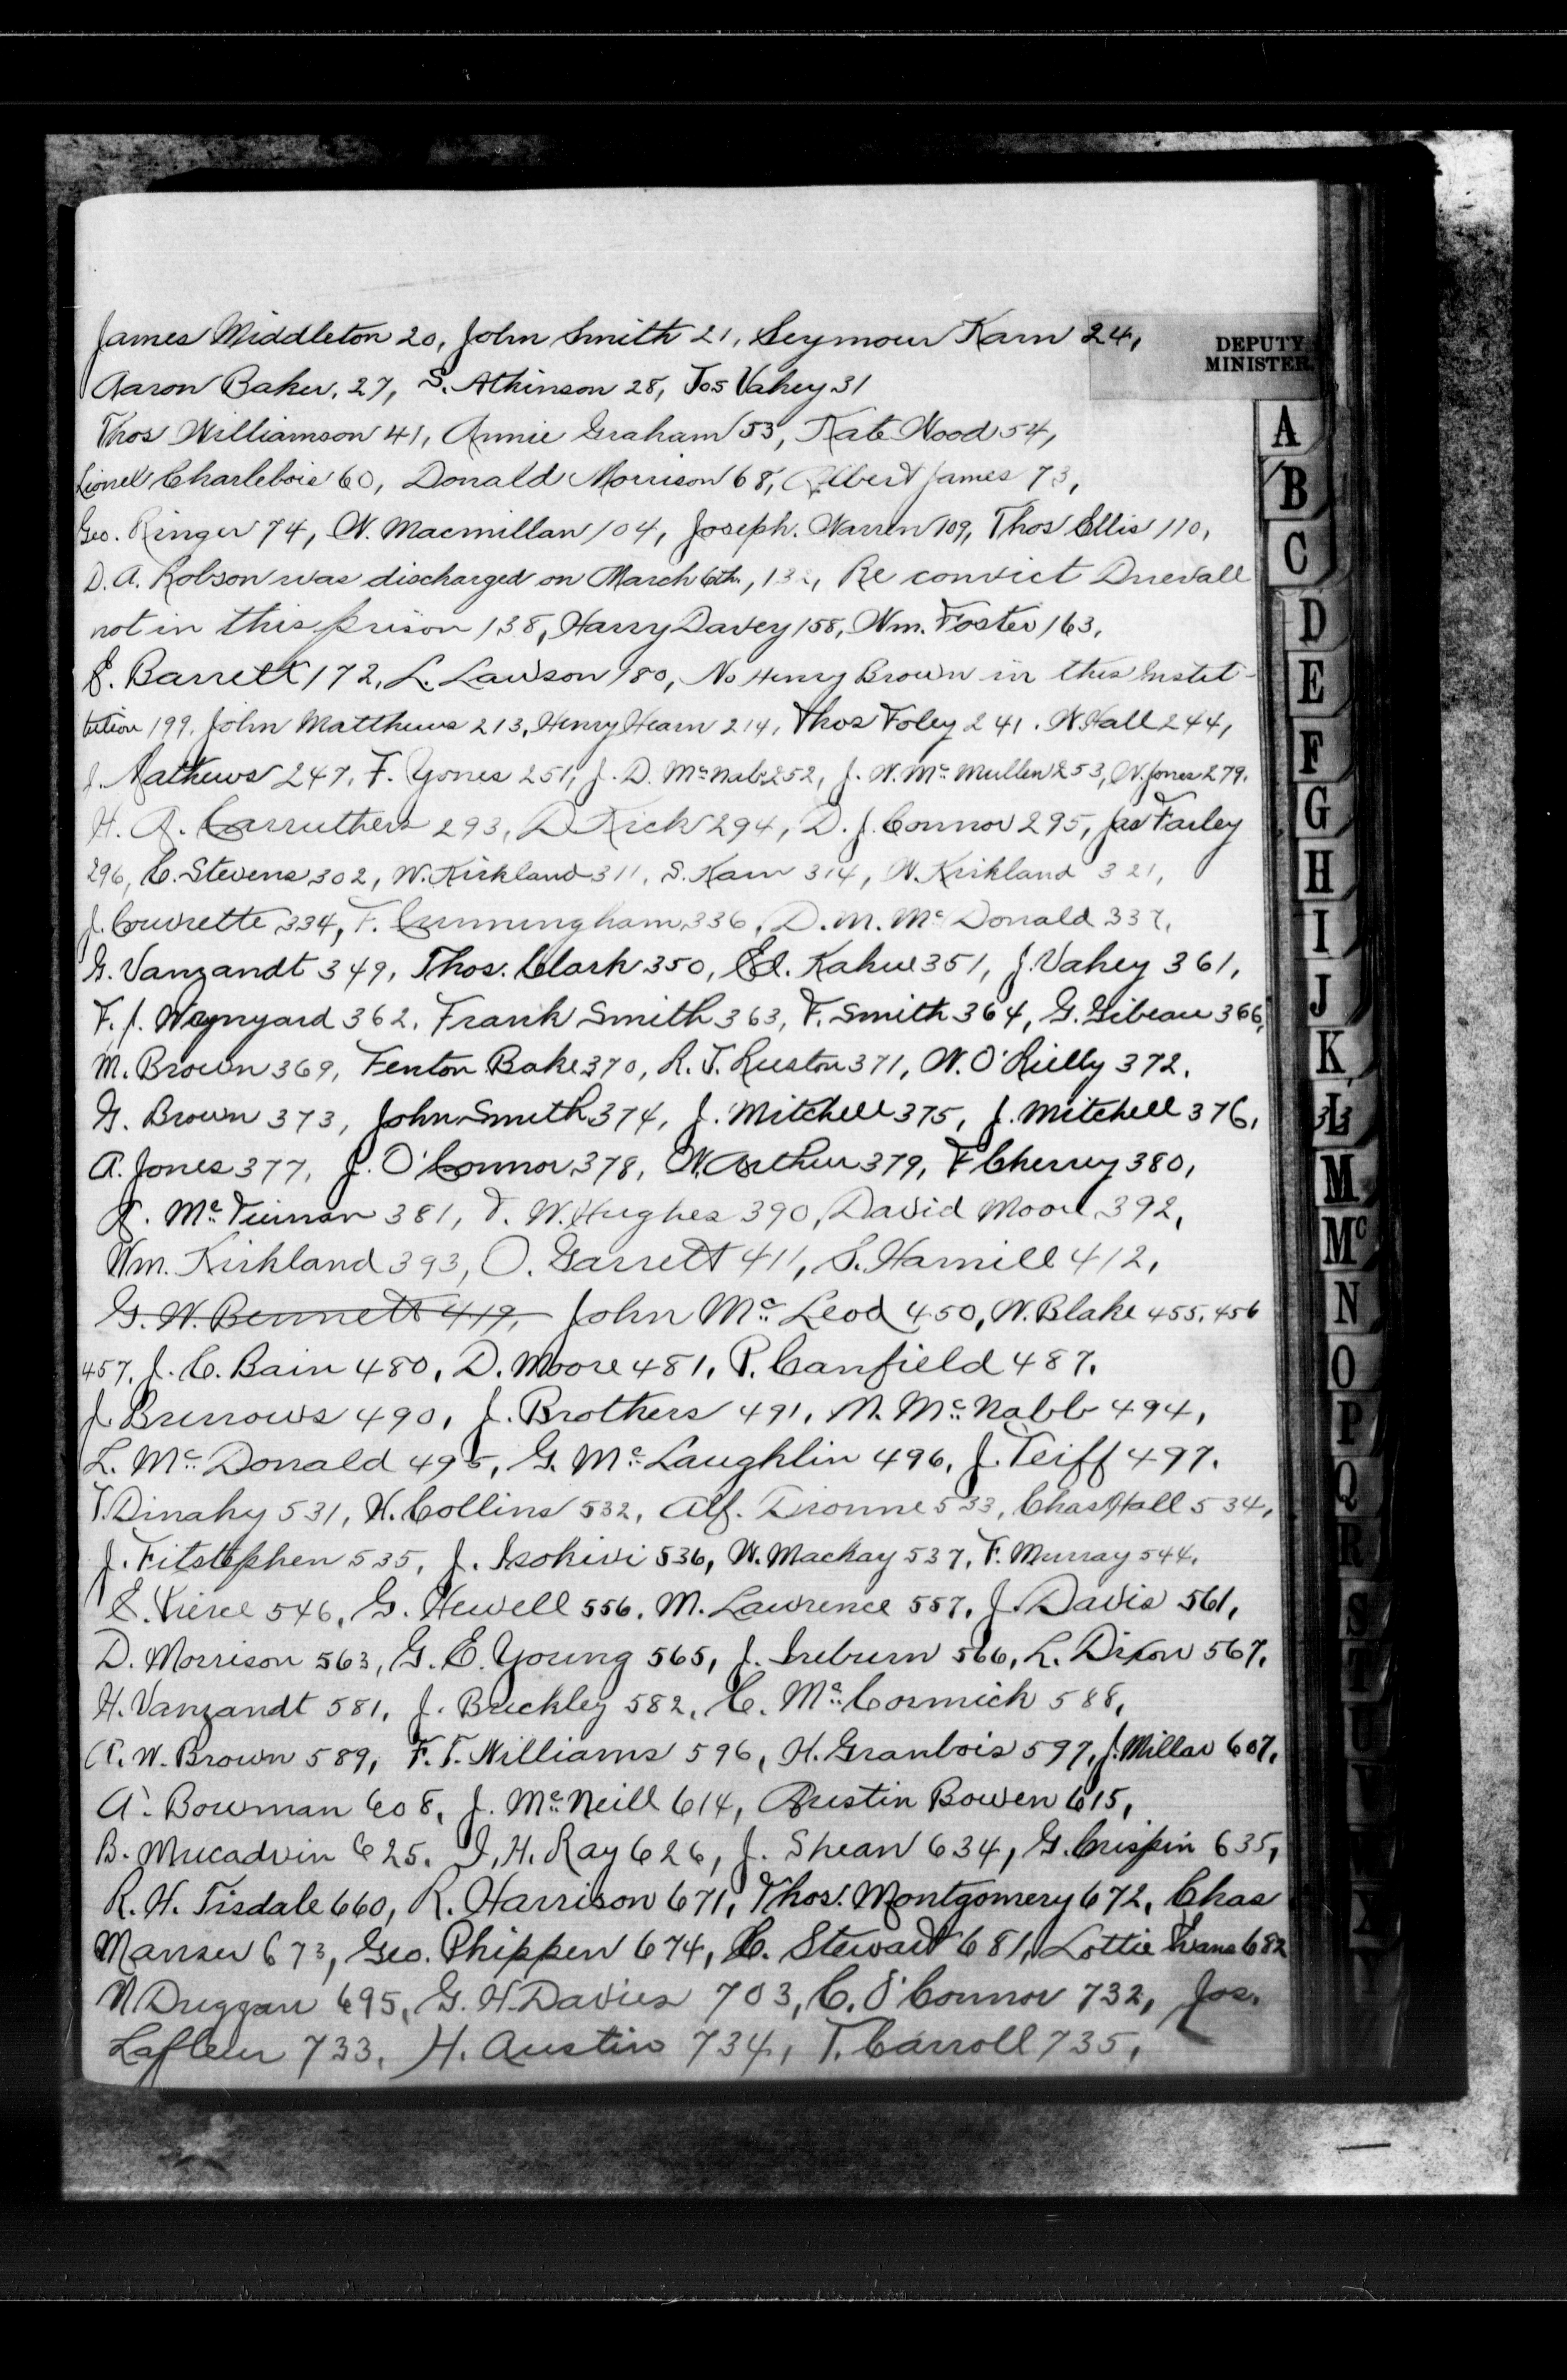 James Middleton 20, John Smith 21, Seymour Karn 24,
DEPUTY
MINISTER.
Aaron Baker, 27, S. Atkinson 28, Jos Vahey 31
Thos Williamson 41, Annie Graham 53, Kate Wood 54,
Lionel Charlebois 60, Donald Morrison 68, Albert James 73,
Geo. Ringer 74, W. Macmillan 104, Joseph. Warren 109, Thos Ellis 110,
D. A. Robson was discharged on March 6th, 132, Re convict Duevall
not in this prison 138, Harry Davey 158, Wm. Foster 163,
E. Barrett 172, L. Lawson 180, No Henry Brown in this Instit-
tution 199, John Matthews 213, Henry Hearn 214, Thos Foley 241. W. Hall 244,
J. Mathews 247, F. Yones 251, J. D. McNab 252, J. W. McMullen 253, W. Jones 279.
H. A. Carruthers 293, D Kick 294, D. J. Connor 295, Jas Farley
296, C. Stevens 302, W. Kirkland 311, S. Karn 314, W. Kirkland 321,
J. Couvrette 334, F. Cunningham 336, D. M. McDonald 337,
G. Vanzandt 349, Thos. Clark 350, Ed. Kahue 351, J. Vahey 361,
F. J. Waynyard 362, Frank Smith 363, F. Smith 364, G. Gibeau 366,
M. Brown 369, Fenton Bake 370, R. J. Ruston 371, W. O'Rielly 372.
G. Brown 373, John Smith 374, J. Mitchell 375, J. Mitchell 376,
A. Jones 377, J. O'Connor 378, W. Arthur 379, F Cherry 380,
McTiernan 381, T. W. Hughes 390, David Moore 392,
Wm. Kirkland 393, O. Garrett 411, S. Hamill 412,
G. W. Bennett 419, John McLeod 450, W. Blake 455, 456
457, J. C. Bain 480, D. Moore 481, P. Canfield 487.
J Burrows 490, J. Brothers 491, M. McNabb 494,
L. McDonald 495, G. McLaughlin 496, J. Teiff 497.
T. Dinahy 531, H. Collins 532, Alf. Dionne 533, Chas Hall 534,
J. Fitstephen 535, J. Isohivi 536, W. Mackay 537, F. Murray 544,
E. Pierce 546, G. Hewell 556, M. Lawrence 557, J. Davis 561,
D. Morrison 563, G. E. Young 565, J. Treburn 566, L. Dixon 567.
H. Vanzandt 581, J. Buckley 582, C. McCormick 588,
A. W. Brown 589, F. T. Williams 596, H. Granbois 597, J. Millar 607,
A. Bowman 608, J. McNeill 614, Austin Bowen 615,
B. Mucadvin 625, J. H. Ray 626, J. Shean 634, G. Crispin 635,
R. H. Tisdale 660, R. Harrison 671, Thos. Montgomery 672, Chas
Manser 673, Geo. Phippen 674, C. Stewart 681, Lottie Evans 682
N Duggan 695, G. H. Davies 703, C. O'Connor 732, Jos.
Lafleur 733, H. Austin 734, T. Carroll 735,
A
B
C
D
E
F
G
H
I
J
K
L
M
Mc
N
O
P
Q
R
S
T
U